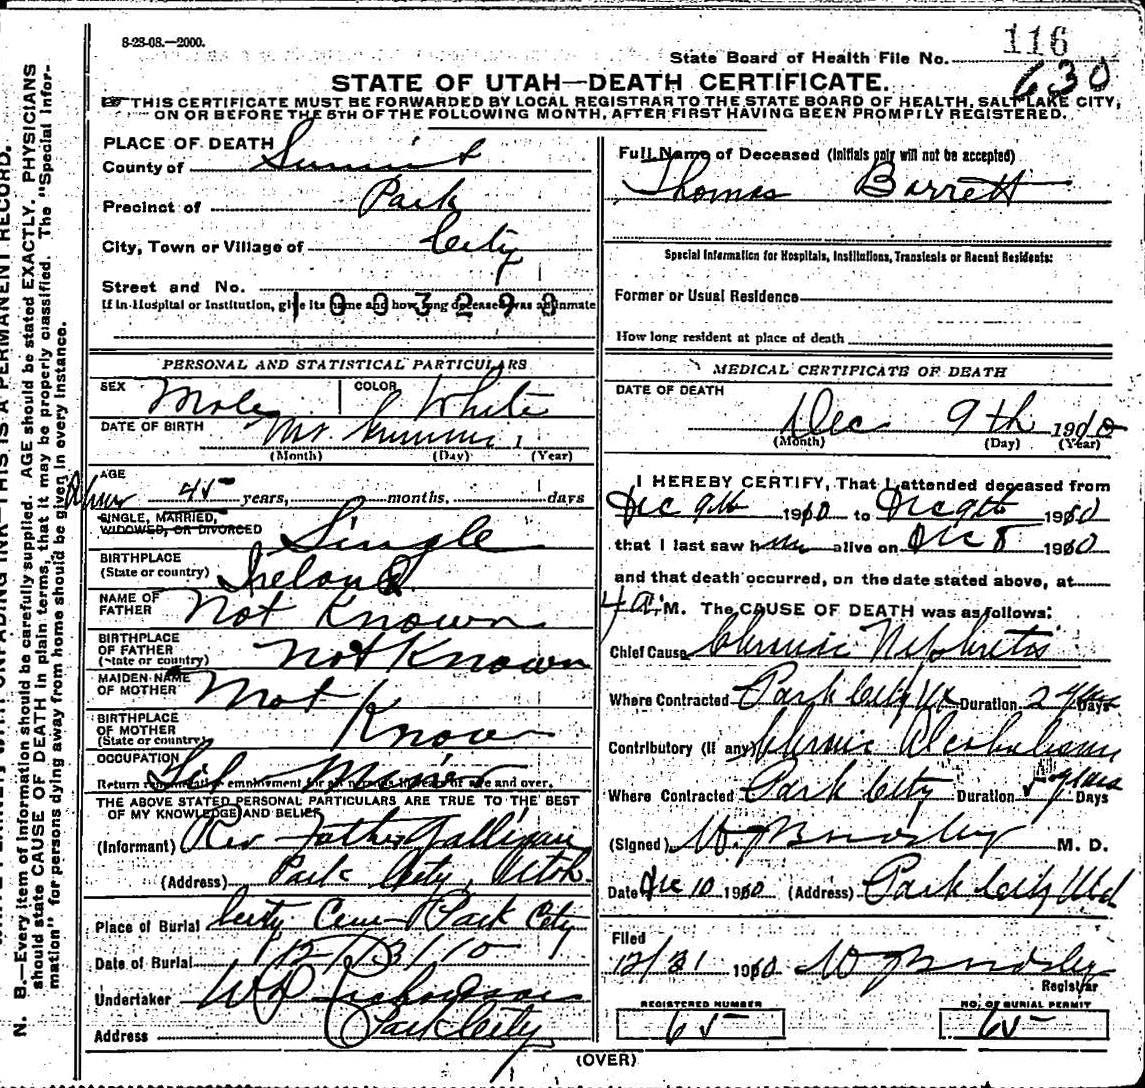 8-28-08.—2000.
116
State Board of Health File No.
630
STATE OF UTAH—DEATH CERTIFICATE.
THIS CERTIFICATE MUST BE FORWARDED BY LOCAL REGISTRAR TO THE STATE BOARD OF HEALTH, SALT LAKE CITY,
ON OR BEFORE THE 5TH OF THE FOLLOWING MONTH, AFTER FIRST HAVING BEEN PROMPTLY REGISTERED.
PLACE OF DEATH
County of Summit
Precinct of Park
City, Town or Village of City
Street and No.
If in Hospital or Institution, give its name and how long deceased was an inmate
1003290
PERSONAL AND STATISTICAL PARTICULARS
SEX Male COLOR White
DATE OF BIRTH
(Month) (Day) (Year)
AGE
45 years, months, days
SINGLE, MARRIED,
WIDOWED, OR DIVORCED Single
BIRTHPLACE
(State or country) Ireland
NAME OF
FATHER Not Known
BIRTHPLACE
OF FATHER
(State or country) Not Known
MAIDEN NAME
OF MOTHER Not
BIRTHPLACE
OF MOTHER
(State or country) Known
OCCUPATION Miner
Return remunerative employment for all persons 10 years of age and over.
THE ABOVE STATED PERSONAL PARTICULARS ARE TRUE TO THE BEST
OF MY KNOWLEDGE AND BELIEF
(Informant) Rev Father Galligan
(Address) Park City, Utah
Place of Burial City Cem Park City
Date of Burial
Undertaker
Address Park City
Full Name of Deceased (Initials only will not be accepted)
Thomas Barrett
Special Information for Hospitals, Institutions, Transients or Recent Residents:
Former or Usual Residence
How long resident at place of death
MEDICAL CERTIFICATE OF DEATH
DATE OF DEATH
Dec 9th 1910
(Month) (Day) (Year)
I HEREBY CERTIFY, That I attended deceased from
Dec 9th 1910 to Dec 9th 1910
that I last saw him alive on Dec 8 1910
and that death occurred, on the date stated above, at
4 a. M. The CAUSE OF DEATH was as follows:
Chief Cause Chronic Nephritis
Where Contracted Park City Ut Duration 2 years Days
Contributory (If any) Chronic Alcoholism
Where Contracted Park City Duration 5 years Days
(Signed) M. D.
Date Dec 10 1910 (Address) Park City Utah
Filed
12/31 1910
Registrar
REGISTERED NUMBER
65
NO. OF BURIAL PERMIT
65
(OVER)
N. B.—Every item of information should be carefully supplied. AGE should be stated EXACTLY. PHYSICIANS
should state CAUSE OF DEATH in plain terms, that it may be properly classified. The "Special Infor-
mation" for persons dying away from home should be given in every instance.